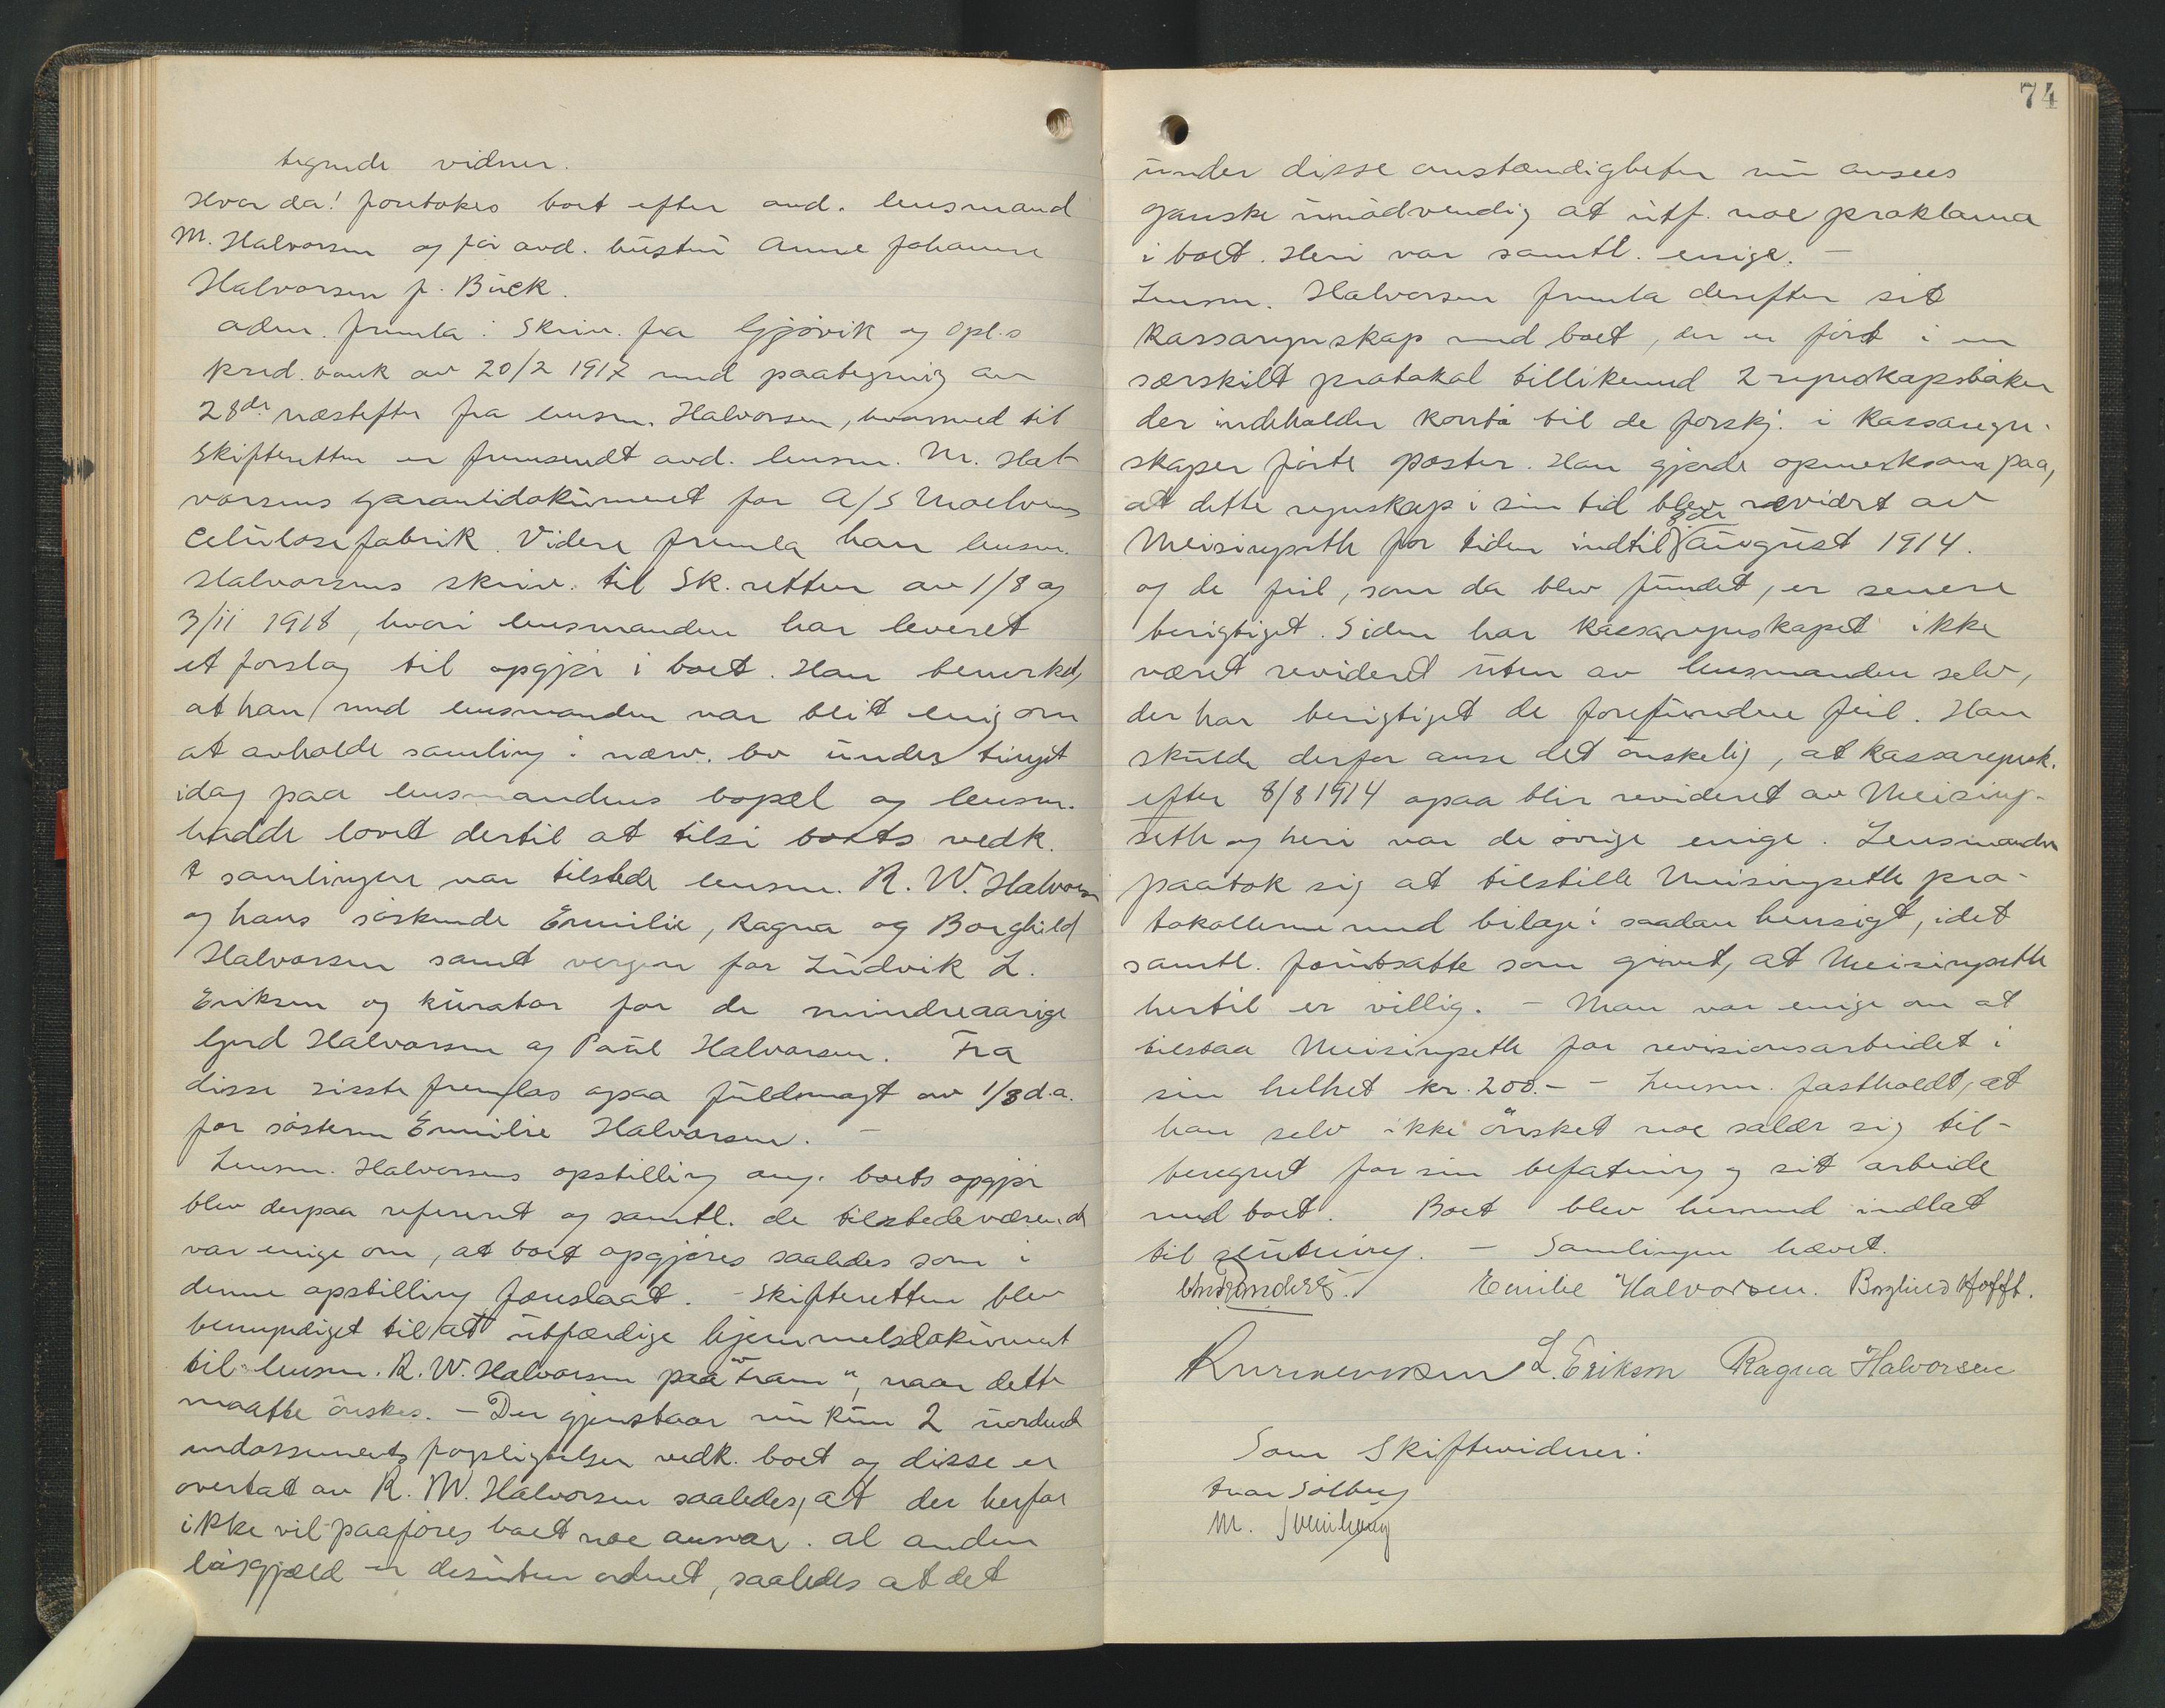 tegnede vidner.
Hvor da! foretokes boet efter avd. lensmand
M. Halvorsen og før avd. hustru Anne Johanne
Halvorsen f. Buck.
Adm. fremla: Skriv. fra Gjøvik og Opl.s
kred. bank av 20/2 1917 med paategning av
28de næstefter fra lensm. Halvorsen, hvormed til
skifteretten er fremsendt avd. lensm. M. Hal-
vorsens garantidokument for A/S Moelvens
Celulosefabrik. Videre fremla han lensm.
Halvorsens skriv. til Sk.retten av 1/8 og
3/11 1918, hvori lensmanden har leveret
et forslag til opgjør i boet. Han bemerket,
at han med lensmanden var blit enig om
at avholde samling i nærv. bo under tinget
idag paa lensmandens bopæl og lensm.
hadde lovet dertil at tilsi boets vedk.
I samlingen var tilstede lensm. R. W. Halvorsen
og hans søskende Emilie, Ragna og Borghild
Halvorsen samt vergen for Ludvik L.
Eriksen og kurator for de mindreaarige
Gerd Halvorsen og Poul Halvorsen. Fra
disse sisste fremlas ogsaa fuldmagt av 1/3 d.a.
for søsteren Emilie Halvorsen. —
Lensm. Halvorsens opstilling ang. boets opgjør
blev derpaa referert og samtl. de tilstedeværende
var enige om, at boet opgjøres saaledes som i
denne opstilling foreslaat. - Skifteretten blev
bemyndiget til at utfærdige hjemmelsdokument
til lensm. R. W. Halvorsen paa "Fram", naar dette
maatte ønskes. — Der gjenstaar nu kun 2 uordned
endossements forpligtelser vedk. boet og disse er
overtat av R. W. Halvorsen saaledes, at der herfor
ikke vil paaføres boet noe ansvar. Al anden
løsgjæld er desuten ordnet, saaledes at det
74
under disse omstændigheter nu ansees
ganske unødvendig at utf. noe proklama
i boet. Heri var samtl. enige. —
Lensm. Halvorsen fremla derefter sit
kassaregnskap med boet, der er ført i en
særskilt protokol tillikemed 2 regnskapsbøker
der indeholder konti til de forskj. i kassaregn-
skaper førte poster. Han gjorde opmerksom paa,
at dette regnskap i sin tid blev revidert av
Meisingseth for tiden indtil 8de august 1914.
og de feil, som da blev fundet, er senere
berigtiget. Siden har kassaregnskapet ikke
været revideret uten av lensmanden selv,
der har berigtiget de forefundne feil. Han
skulde derfor anse det ønskelig, at kassaregnsk.
efter 8/8 1914 ogsaa blir revideret av Meising-
seth og heri var de øvrige enige. Lensmanden
paatok sig at tilstille Meisingseth pro-
tokollerne med bilage i saadan hensigt, idet
samtl. forutsatte som givet, at Meisingseth
hertil er villig. — Man var enige om at
tilstaa Meisingseth for revisionsarbeidet i
sin helhet kr. 200.- - Lensm. fastholdt, at
han selv ikke ønsket noe salær sig til-
beregnet for sin befatning og sit arbeide
med boet. Boet blev hermed indlat
til slutning. — Samlingen hævet.
Emilie Halvorsen. Borghild Hofft.
L. Eriksen Ragna Halvorsen
Som Skiftevidner:
Ivar Solberg
M. Sveinhaug